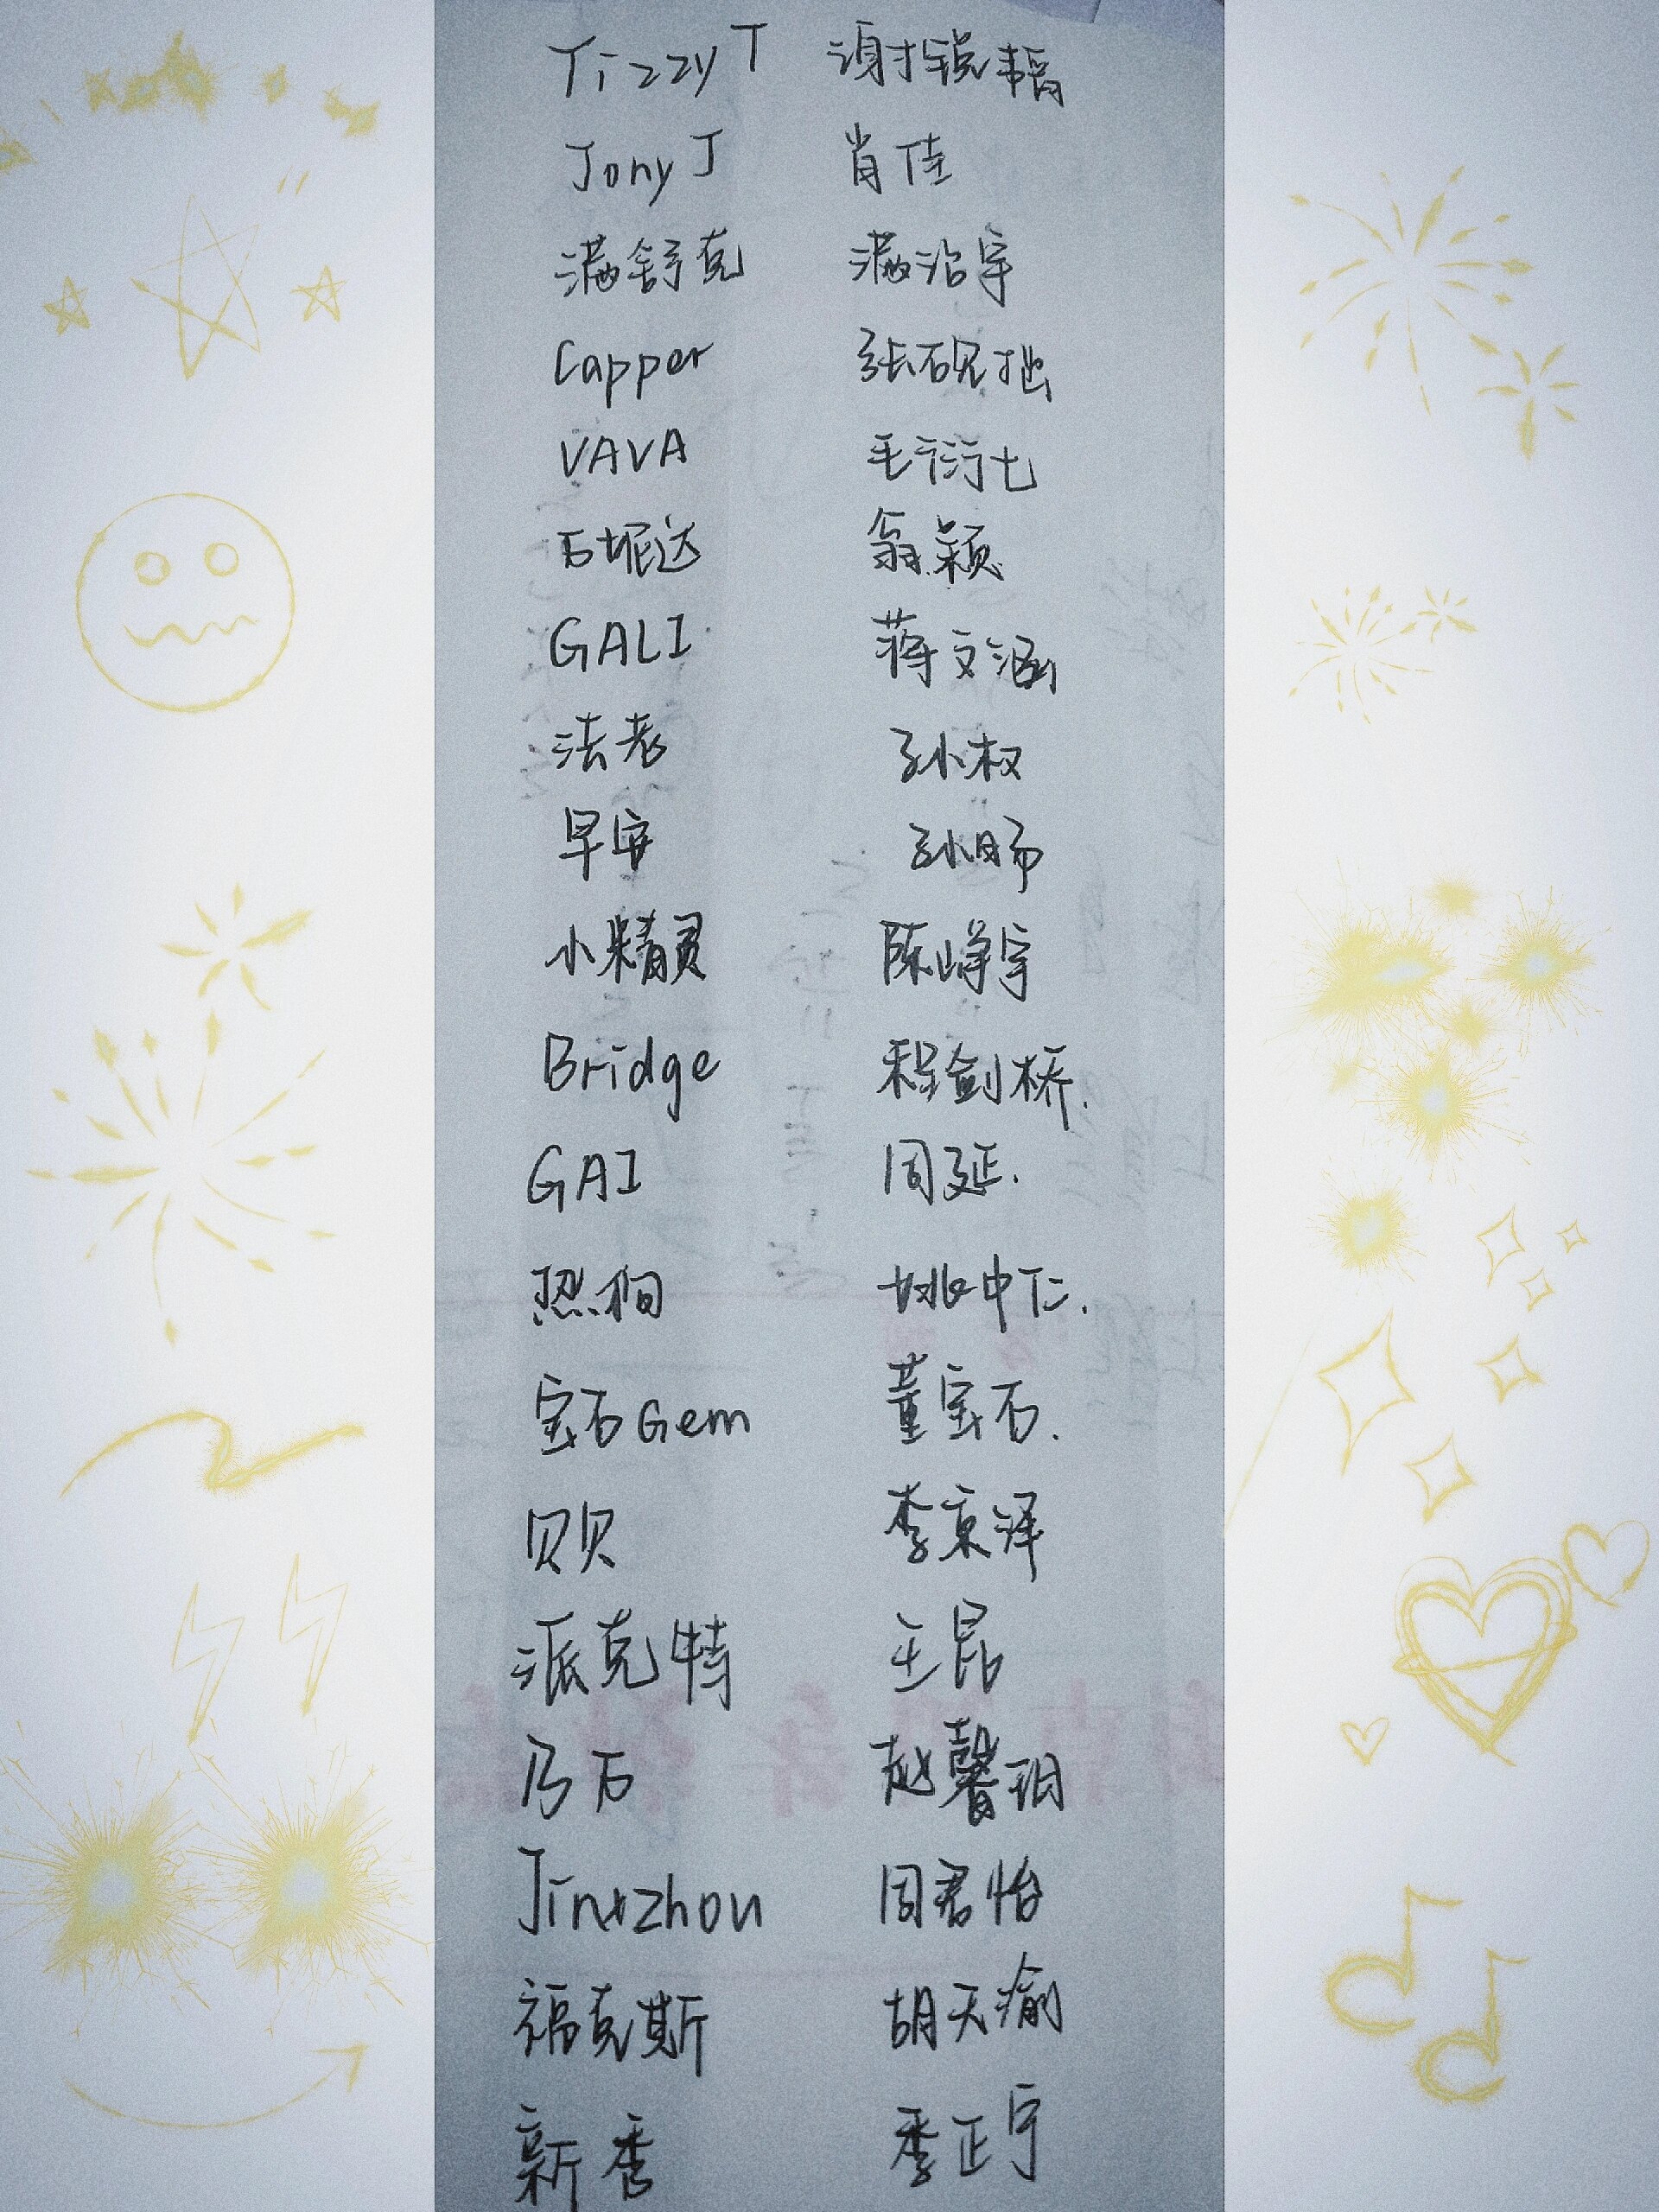 TizzyT 谢锐韬
JonyJ 肖佳
满舒克 满治宇
Capper 张砚拙
VAVA 毛衍七
万妮达 翁颖
GALI 蒋文涵
法老 孙权
早安 孙旸
小精灵 陈峥宇
Bridge 程剑桥.
GAI 周延.
熙伺 姚中仁.
宝石Gem 董宝石.
贝贝 李京泽
派克特 王昆
乃万 赵馨玥
JinxZhou 周君怡
福克斯 胡天渝
新秀 季正宇